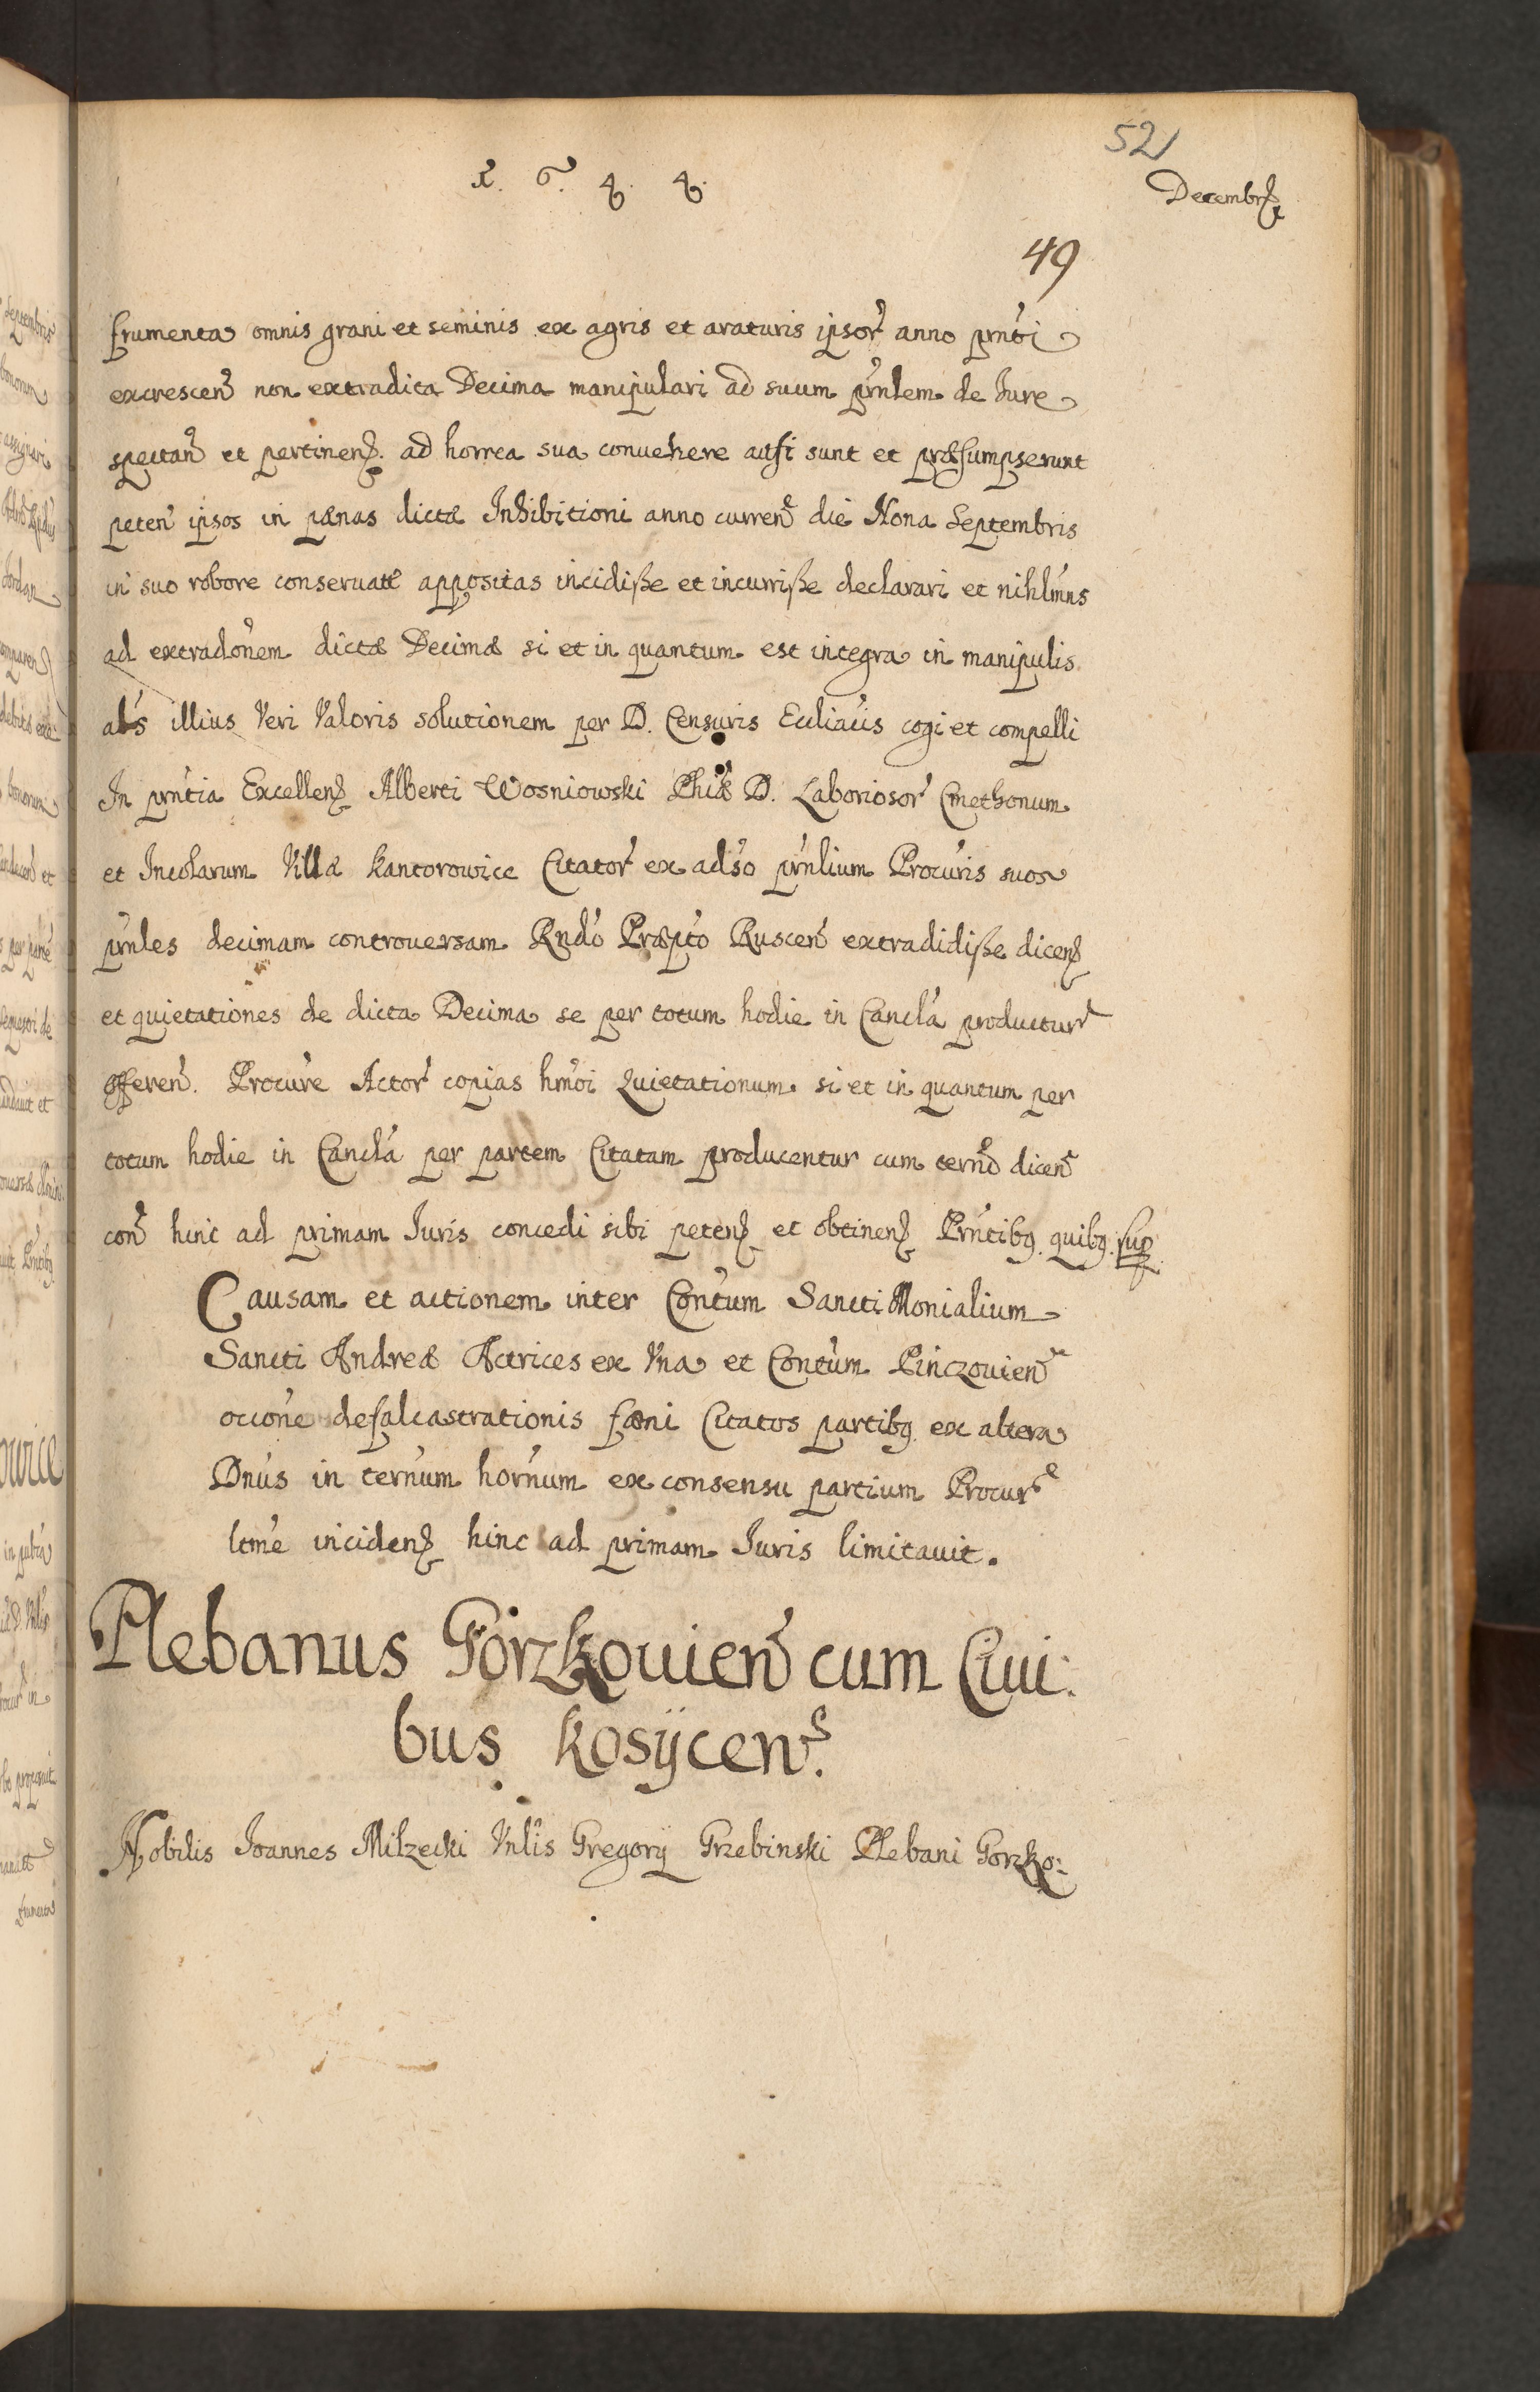 521
Decembr̃
49
frumenta omnis grani et seminis ex agris et araturis ipsor̃ anno prñti
excrescen̄ non extradita Decima manipulari ad suum prñlem de Iure
spectan̄ et pertinen̄. ad horrea sua conuehere ausi sunt et præsumpserunt
peten̄ ipsos in pænas dictæ Inhibitioni anno curren̄ die Nona Septembris
in suo robore conseruatæ appositas incidiße et incurriße declarari et nihlm̃ns
ad extradoñem dictæ Decimæ si et in quantum est integra in manipulis
als̃ illius Veri Valoris solutionem per D. Censuris Eccliaũis cogi et compelli
In prñtia Excellen̄ Alberti Wosniowski Phiæ D. Laborisor̃ Cmethonum
et Incolarum Villæ Kantorowice Citator̃ ex adso prñlium Procur̃is suos
prñles decimam controuersam Rndõ Præpto Ruscen̄ extradidiße dicen̄
et quietationes de dicta Decima se per totum hodie in Canclã producturũ
offeren̄. Procur̃e Actor̃ copias hmõi Quietationum si et in quantum per
totum hodie in Canclã per partem Citatam producentur cum ternõ dicen̄
con̄ hinc ad primam Iuris concedi sibi peten̄ et obtinen̄ Prñtibq. quibq. sup
Causam et actionem inter Contũm Sancti Monialium
Sancti Andreæ Actrices ex Vna et Contũm Pinczouien̄
occoñe defalcastrationis fæni Citatos partibq ex altera
Dnũs in ternũm hornũm ex consensu partium Procur̃
ltmẽ inciden̄ hinc ad primam Iuris limitauit.
Plebanus Gorzkouien̄ cum Ciui:
bus Kosÿcen̄.
Nobilis Ioannes Milzecki Vnlĩs Gregorÿ Grzebinski Plebani Gorzko: